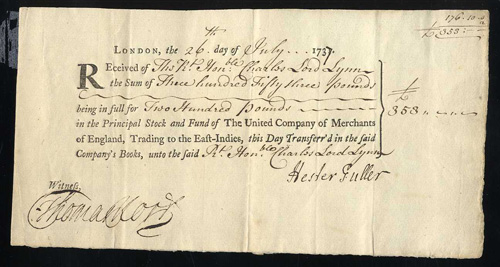 176-10-0
£ 353:
LONDON, the 26.th day of July... 1737.
RECEIVED of The Rt. Honble Charles Lord Lynn
the Sum of Three hundred Fifty three Pounds
£
353 " — —
being in full for Two Hundred Pounds
in the Principal Stock and Fund of The United Company of Merchants
of England, Trading to the East-Indies, this Day Transferr'd in the said
Company's Books, unto the said Rt. Honble Charles Lord Lynn
Hester Fuller
Witness,
Thomas